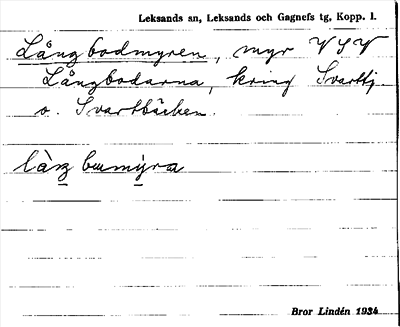 Leksands sn, Leksands och Gagnefs tg, Kopp. l.
Långbodmyren, myr VSV
Långbodarna, kring Svarttj.
o. Svartbäcken.
làŋ bumýra
Bror Lindén 1934